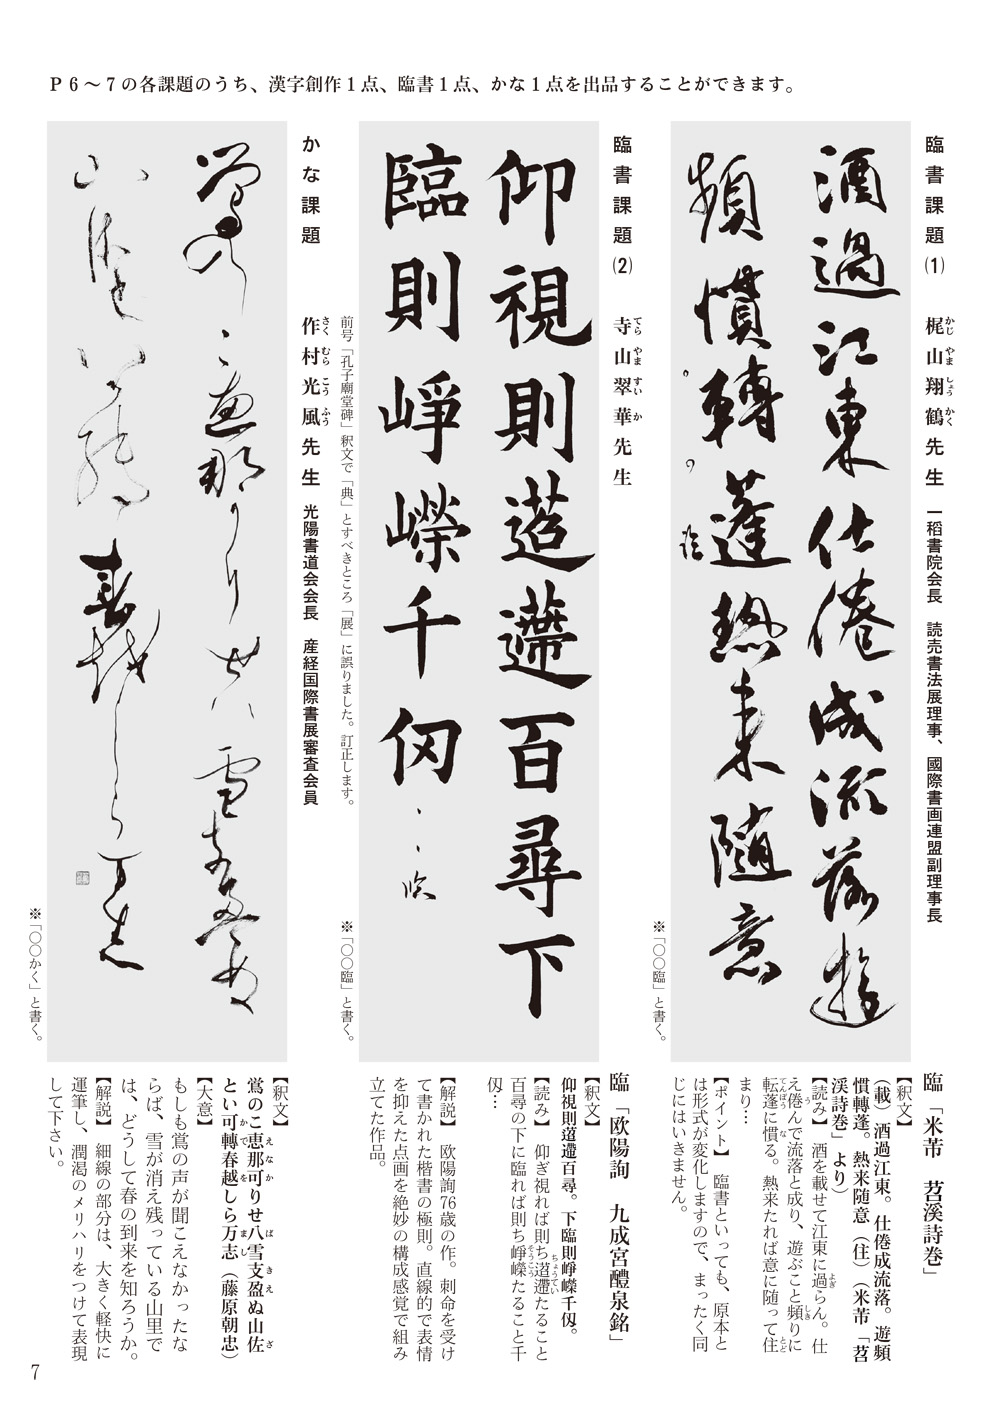 P6〜7の各課題のうち、漢字創作1点、臨書1点、かな1点を出品することができます。
臨書課題(1)　梶山翔鶴先生　一稻書院会長　読売書法展理事、國際書画連盟副理事長
かじ やま しょう かく
酒過江東仕倦成流落遊
頻慣轉蓬熱来随意
臨
※「〇〇臨」と書く。
臨「米芾　苕溪詩巻」
【釈文】
（載）酒過江東。仕倦成流落。遊頻
慣轉蓬。熱来随意（住）（米芾「苕
渓詩巻」より）
【読み】　酒を載せて江東に過らん。仕
え倦んで流落と成り、遊ぶこと頻りに
転蓬に慣る。熱来たれば意に随って住
まり…
【ポイント】　臨書といっても、原本と
は形式が変化しますので、まったく同
じにはいきません。
臨書課題(2)　寺山翠華先生
てら やま すい か
仰視則迢遰百尋下
臨則崢嶸千仞
臨
※「〇〇臨」と書く。
臨「欧陽詢　九成宮醴泉銘」
【釈文】
仰視則迢遰百尋。下臨則崢嶸千仭。
【読み】　仰ぎ視れば則ち迢遰たること
百尋の下に臨れば則ち崢嶸たること千
仭…
【解説】　欧陽詢76歳の作。刺命を受け
て書かれた楷書の極則。直線的で表情
を抑えた点画を絶妙の構成感覚で組み
立てた作品。
前号「孔子廟堂碑」釈文で「典」とすべきところ「展」に誤りました。訂正します。
かな課題　作村光風先生　光陽書道会会長　産経国際書展審査会員
さく むら こう ふう
鴬のこ恵那可りせ八雪支盈ぬ
山佐とい可轉春越しら万志
※「〇〇かく」と書く。
【釈文】
鴬のこ恵那可りせ八雪支盈ぬ山佐
とい可轉春越しら万志（藤原朝忠）
【大意】
もしも鴬の声が聞こえなかったな
らば、雪が消え残っている山里で
は、どうして春の到来を知ろうか。
【解説】　細線の部分は、大きく軽快に
運筆し、潤渇のメリハリをつけて表現
して下さい。
7